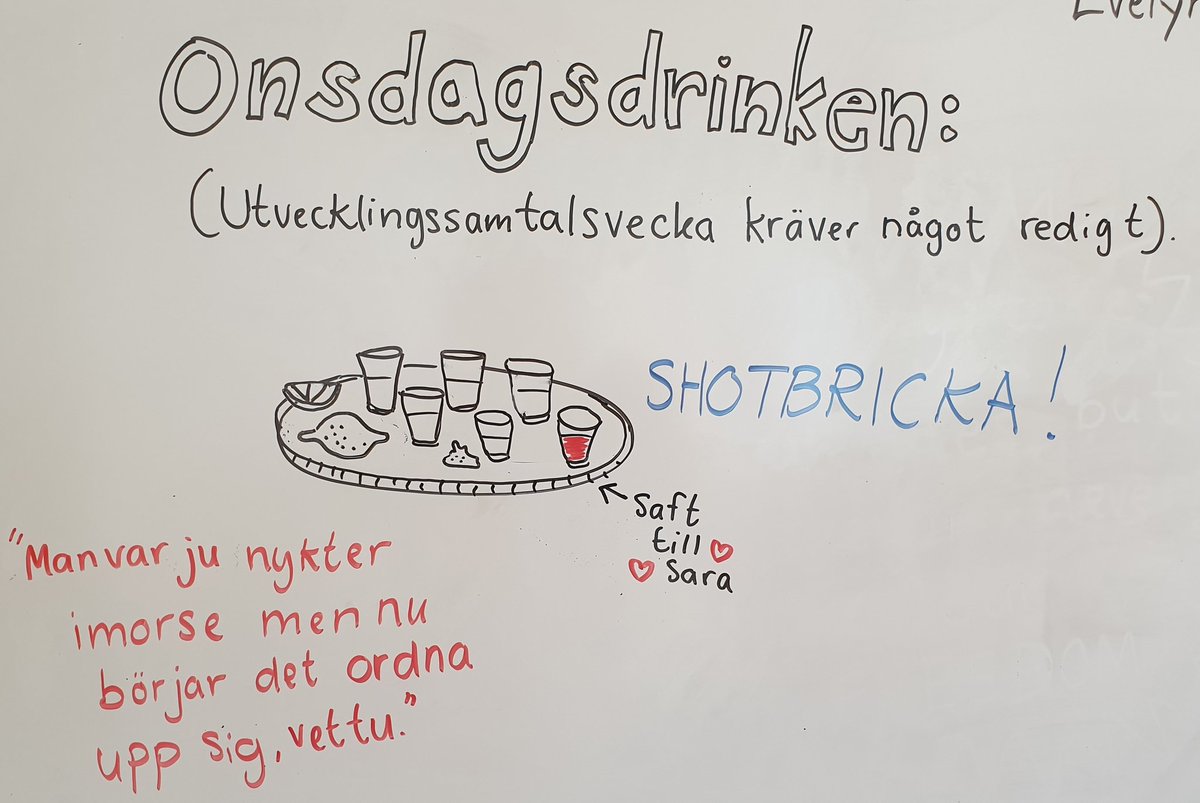 Onsdagsdrinken:
(Utvecklingssamtalsvecka kräver något redigt).
SHOTBRICKA!
Saft
till
Sara
"Man var ju nykter
imorse men nu
börjar det ordna
upp sig, vettu."